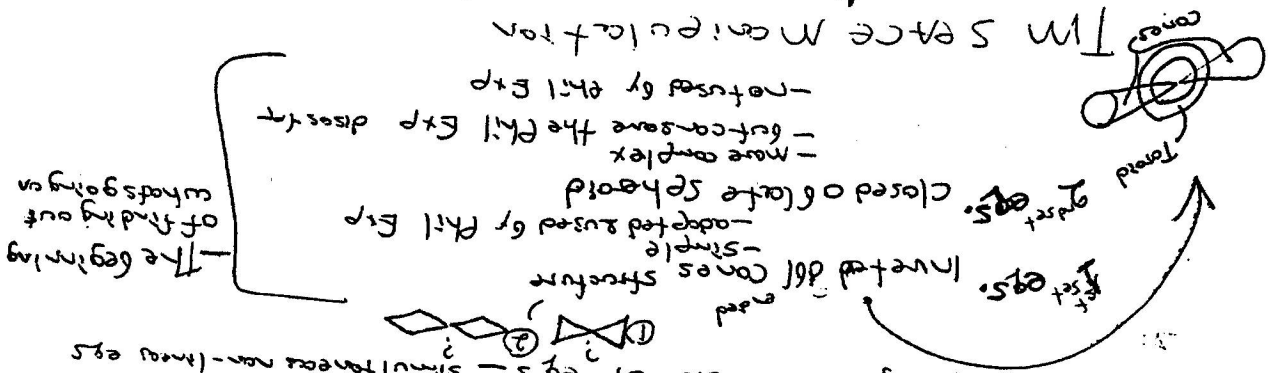 eqs – simultaneous non-linear eqs
① ? ② ?
1st set eqs. Inverted dbl ended cones structure
– simple
– adapted & used by Phil Exp
2nd set eqs. closed oblate spheroid
– more complex
– but can save the Phil Exp disastr
– not used by Phil Exp
– The beginning
of finding out
whats going on
Toroid
cones
TIM SPACE Manipulation